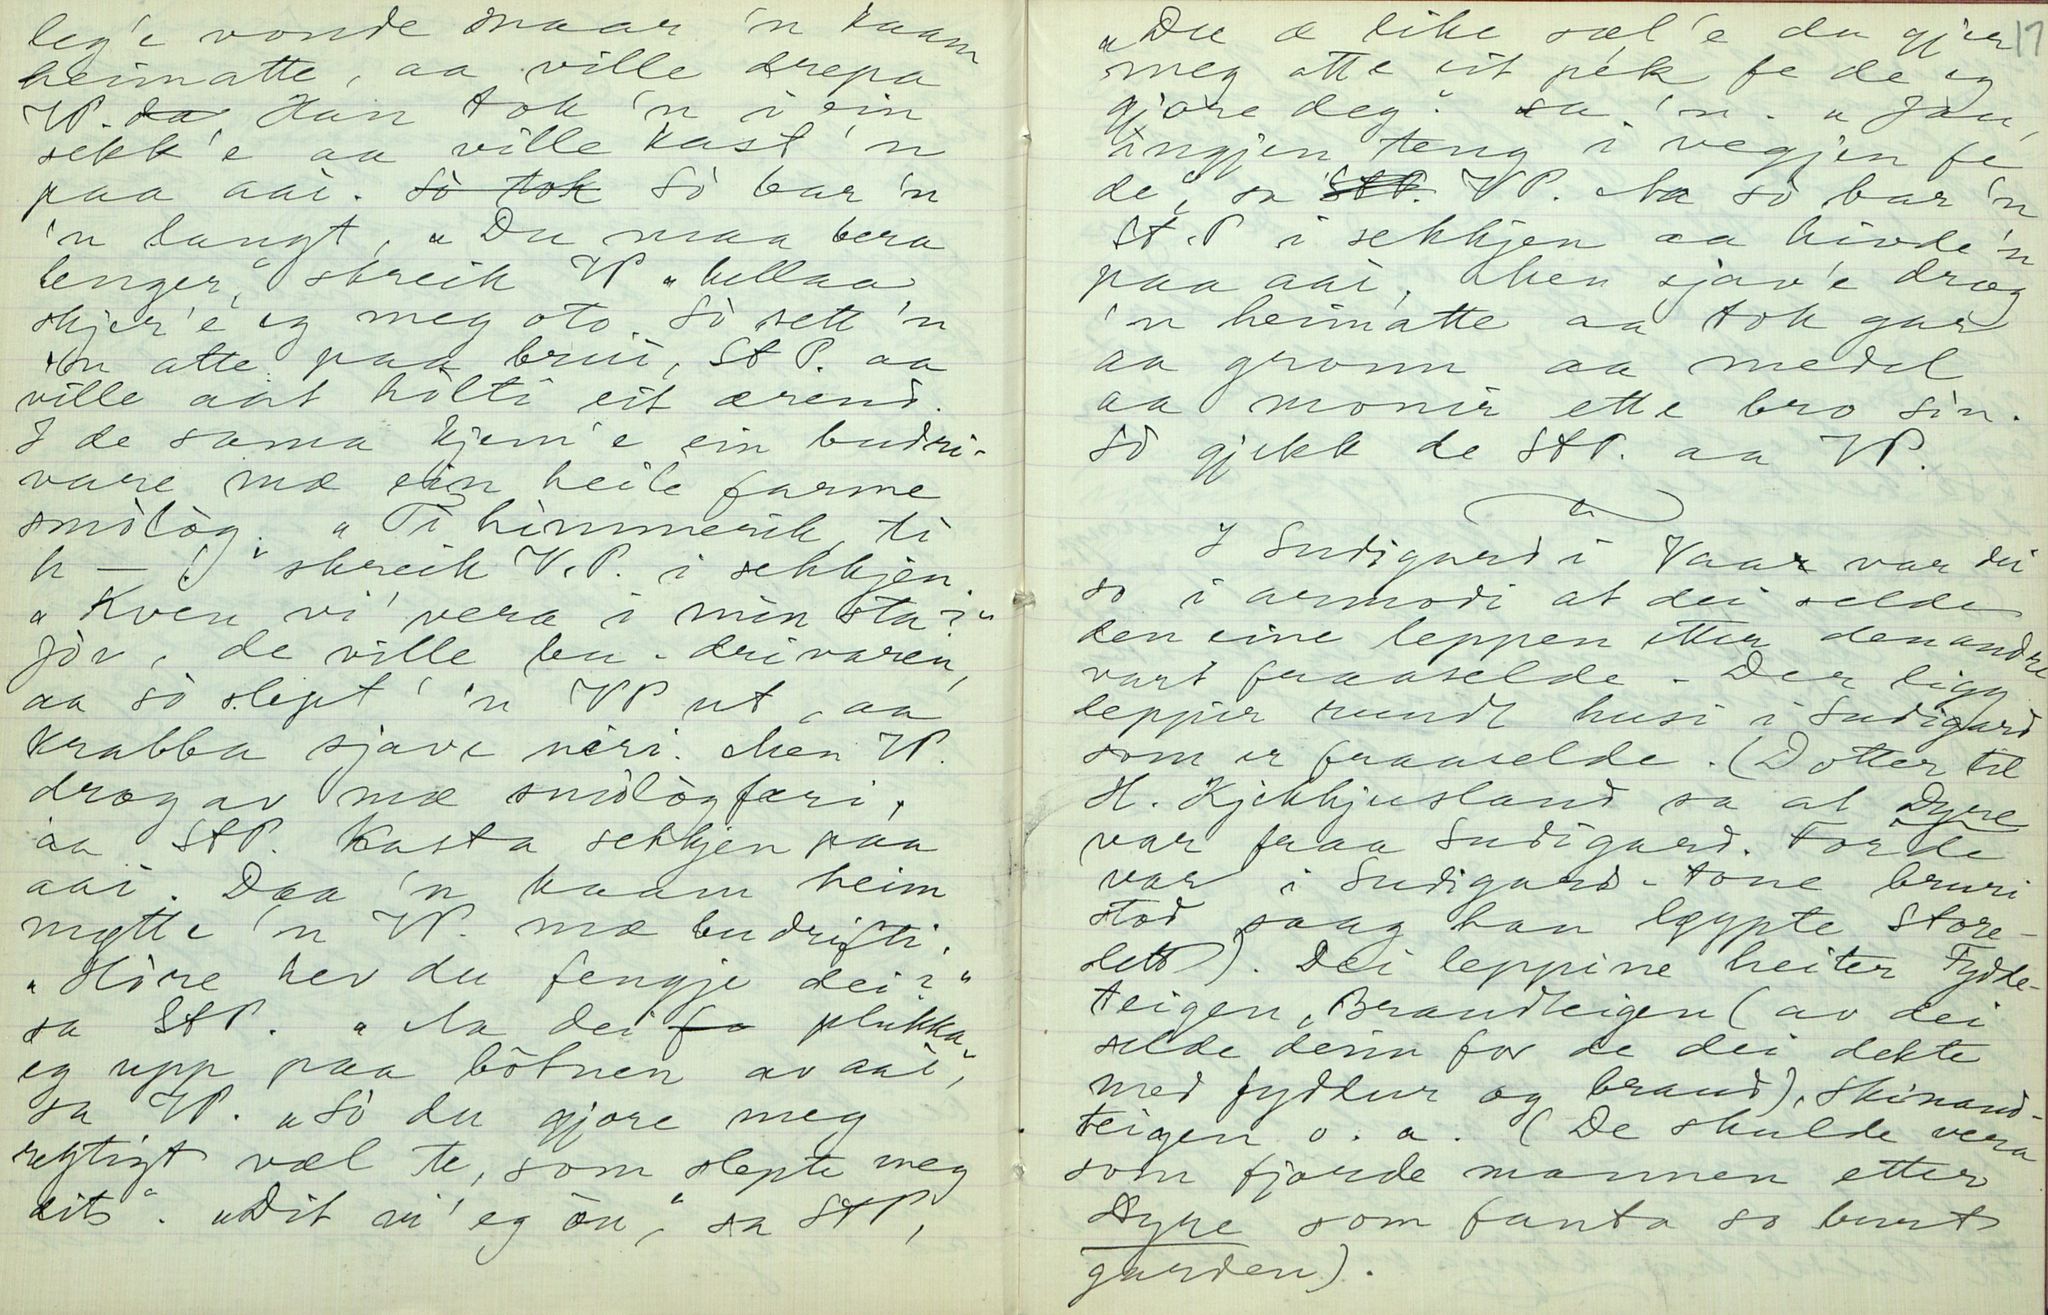 leg'e vonde naar 'n kaam
heimatte, aa ville drepa
VP. da Han tok 'n i ein
sekk'e aa ville kast 'n
paa aai. Sò tok Sò bar 'n
'n langt, „Du maa bera
lenger," skreik VP „hellaa
skjer'e eg meg oto. Sò sett 'n
'n atte paa brui, StP. aa
ville aat hòlti eit ærend.
I de sama kjem'e ein budri-
vare mæ ein heile farme
smòlòg. „Ti himmerik, ti
h — !" skreik V.P. i sekkjen.
„Kven vi' vera i min sta?"
Jòv, de ville bu-drivaren,
aa sò slept' 'n VP ut, aa
krabba sjave neri. Men VP.
drog av mæ smòlògfæri,
aa StP. kasta sekkjen paa
aai. Daa 'n kaam heim
møtte 'n VP. mæ budrifti.
„Hòre hev du fengje dei?"
sa StP. „Aa dei fa plukka
eg upp paa bòtnen av aai",
sa VP. „Sò du gjore meg
regtigt væl te, som slepte meg
dit". „Dit vi' eg òu", sa StP,
17
„Du æ like sæl'e du gjer
meg atte eit pek fe de eg
gjore deg" sa 'n. „Jau,
ingjen teng i vegjen fe
de", sa StP. VP. Aa sò bar 'n
St.P i sekkjen aa hivde 'n
paa aai. Men sjav'e drog
'n heimatte aa tok gar
aa gronn aa medel
aa monir ette bro sin.
Sò gjekk de StP. aa VP.
I Sudigard i Vaar var dei
so i armodi at dei selde
den eine leppen etter den andre
vart fraaselde. Der ligg
leppir rundt husi i Sudigard
som er fraaselde. (Dotter til
H. Kjekkjusland sa at Dyre
var fraa Sudigard. Torde
var i Sudigard-tone bruri
stod saag han lægpte Store-
slett). Dei leppine heiter Fydde-
teigen, Brandteigen (av dei
selde deim for de dei dekte
med fyddur og brand), Skinand-
teigen o. a. (De skulde vera
som fjorde mannen etter
Dyre som fanta so burt
garden).